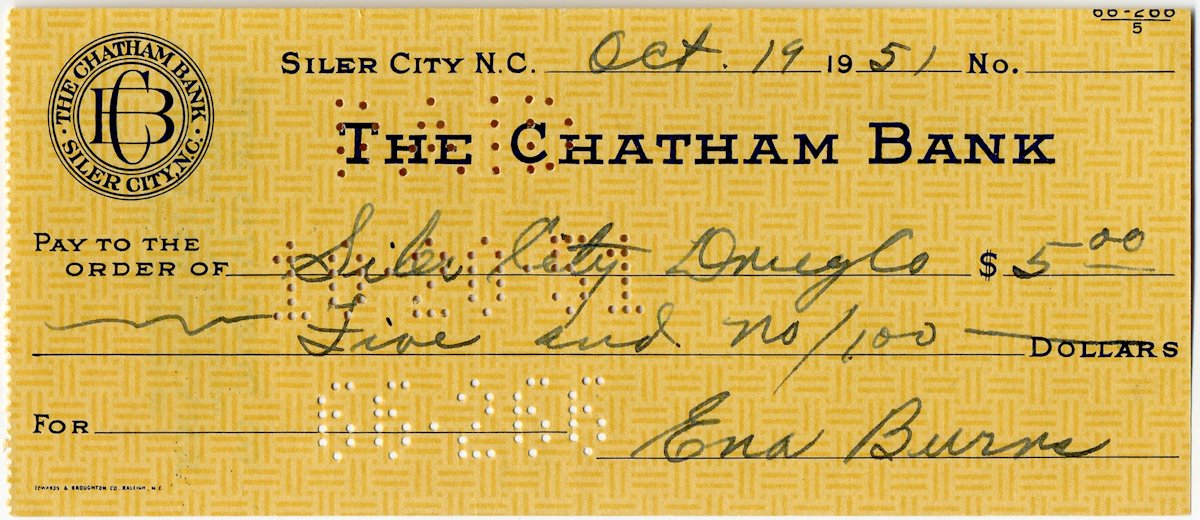 66-266
5
THE CHATHAM BANK
CB
SILER CITY, N.C.
SILER CITY N.C. Oct. 19 1951 No.
THE CHATHAM BANK
PAY TO THE
ORDER OF Siler City Drug Co $ 5.00
Five and no/100 DOLLARS
FOR
Ena Burns
66-266
EDWARDS & BROUGHTON CO. RALEIGH, N.C.